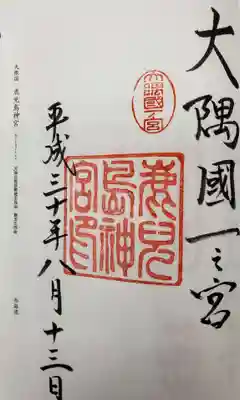 大隅國一之宮
大隅國一宮
鹿兒島神宮印
平成三十年八月十三日
大隅国 鹿児島神宮